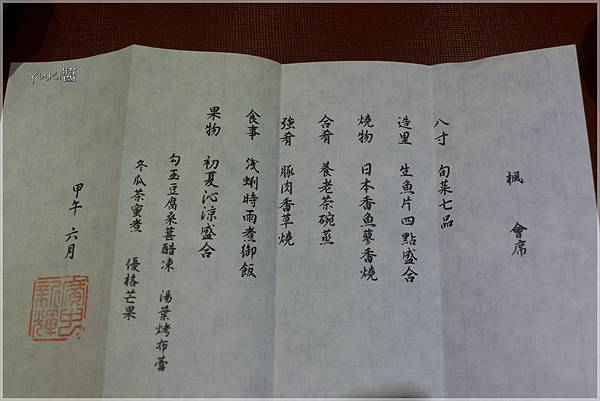 楓 會席
八寸 旬菜七品
造里 生魚片四點盛合
燒物 日本香魚蓼香燒
合肴 養老茶碗蒸
強肴 豚肉香草燒
食事 浅蜊時雨煮御飯
果物 初夏沁涼盛合
勾玉豆腐桑葚醋凍 湯葉烤布蕾
冬瓜茶蜜煮 優格芒果
甲午 六月
Yuki醬